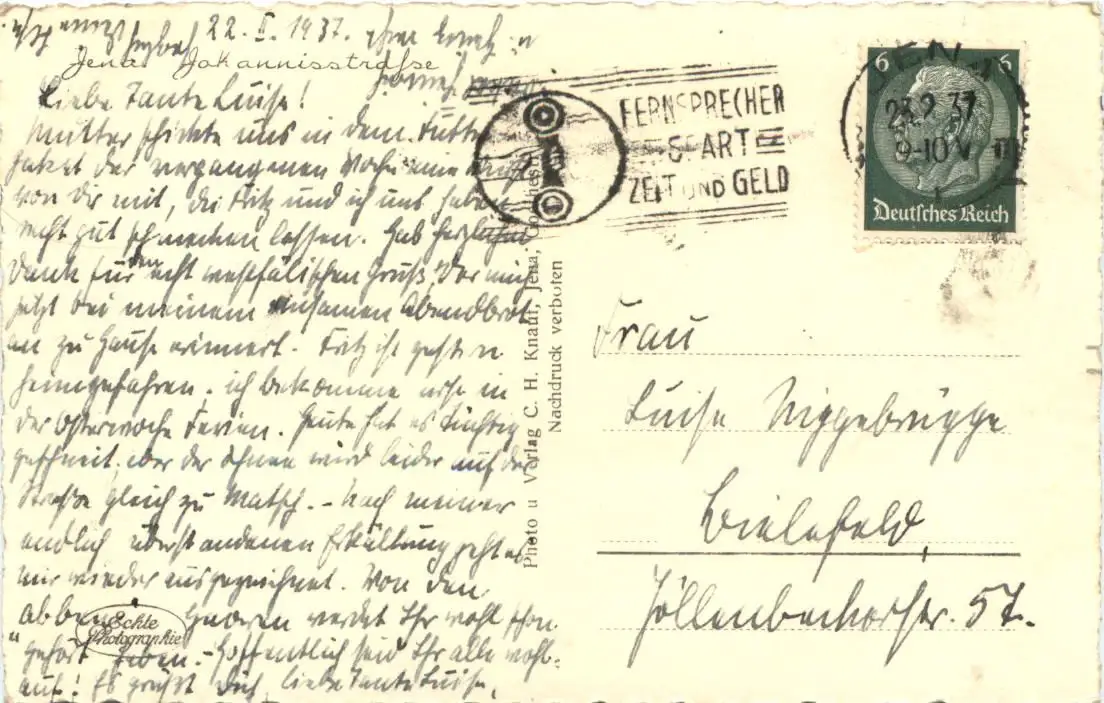 22. II. 1937.
Jena. Johannisstraße
Liebe Tante Luise!
Mutter schickte uns in dem Futter
der vergangenen Woche eine
von Dir mit, die Fritz und ich uns haben
recht gut schmecken lassen. Hab herzlichen
Dank für den echt westfälischen Gruß! Der mich
jetzt bei meinem einsamen Abendbrot
an zu Hause erinnert. Fritz ist gestern
heimgefahren. ich bekomme erst in
der Osterwoche Ferien. Heute hat es tüchtig
geschneit, aber der Schnee wird leider auf der
Straße gleich zu Matsch. - Nach meiner
endlich überstandenen Erkältung geht es
mir wieder ausgezeichnet. Von den
werdet Ihr wohl schon
gehört haben. - Hoffentlich seid Ihr alle wohl-
auf! Es grüßt Dich, liebe Tante Luise,
Echte
Photographie
Photo u Verlag C. H. Knauf, Jena,
Nachdruck verboten
FERNSPRECHER
SPART
ZEIT UND GELD
JENA
23.2.37
9-10 V
6 6
Deutsches Reich
Frau
Luise Niggebrügge
Bielefeld,
Jöllenbeckerstr. 57.